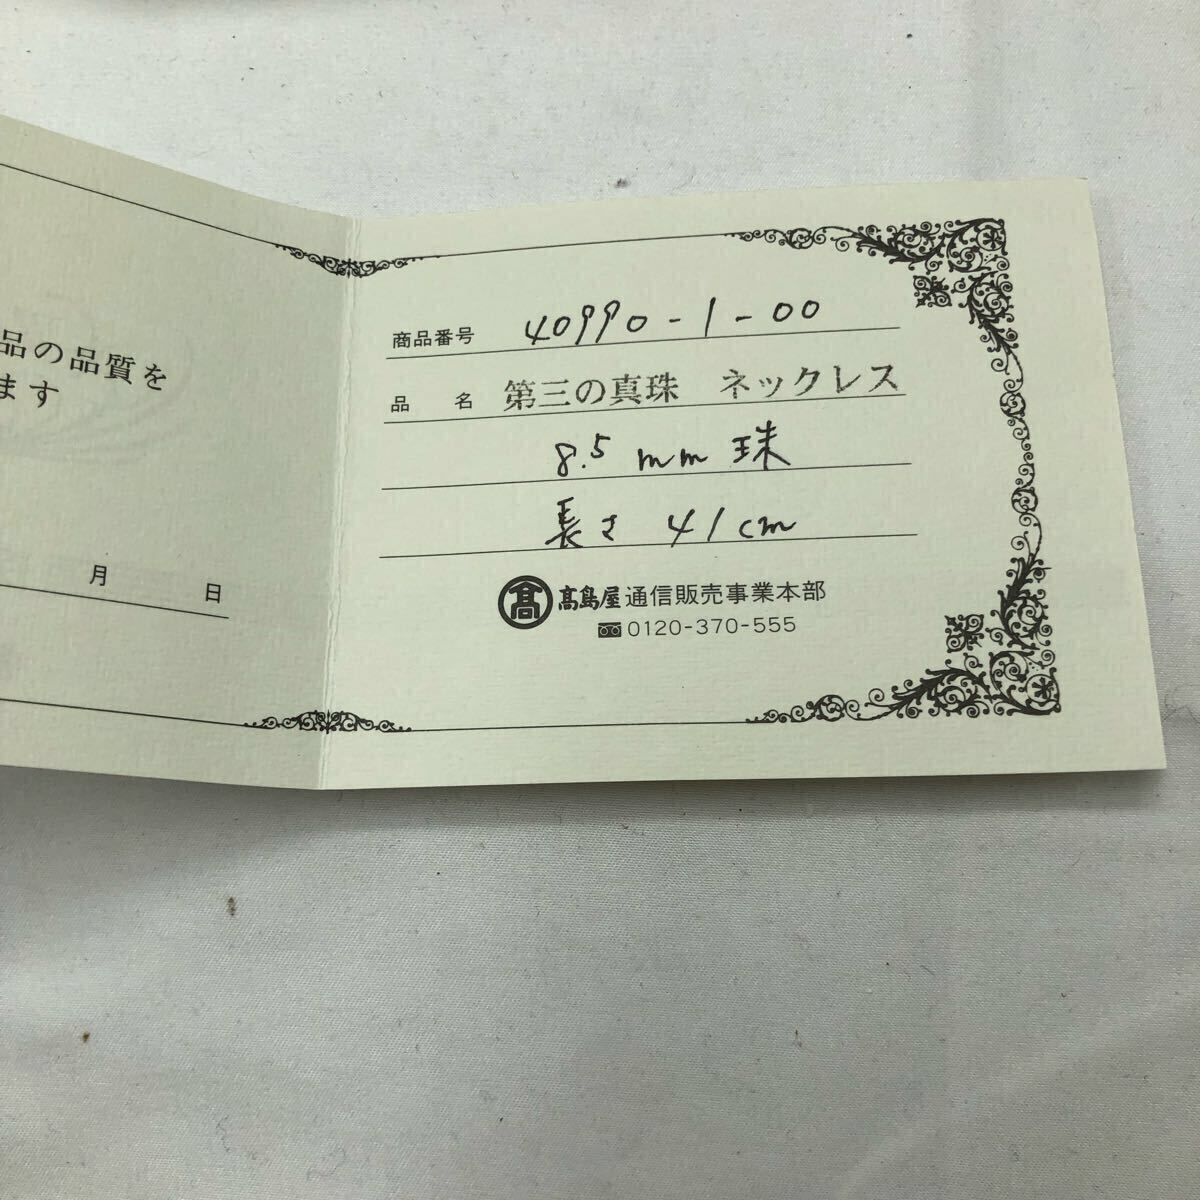 品の品質を
ます
月 日
商品番号 40990-1-00
品 名 第三の真珠 ネックレス
8.5 mm 珠
長さ 41cm
髙 髙島屋 通信販売事業本部
0120-370-555